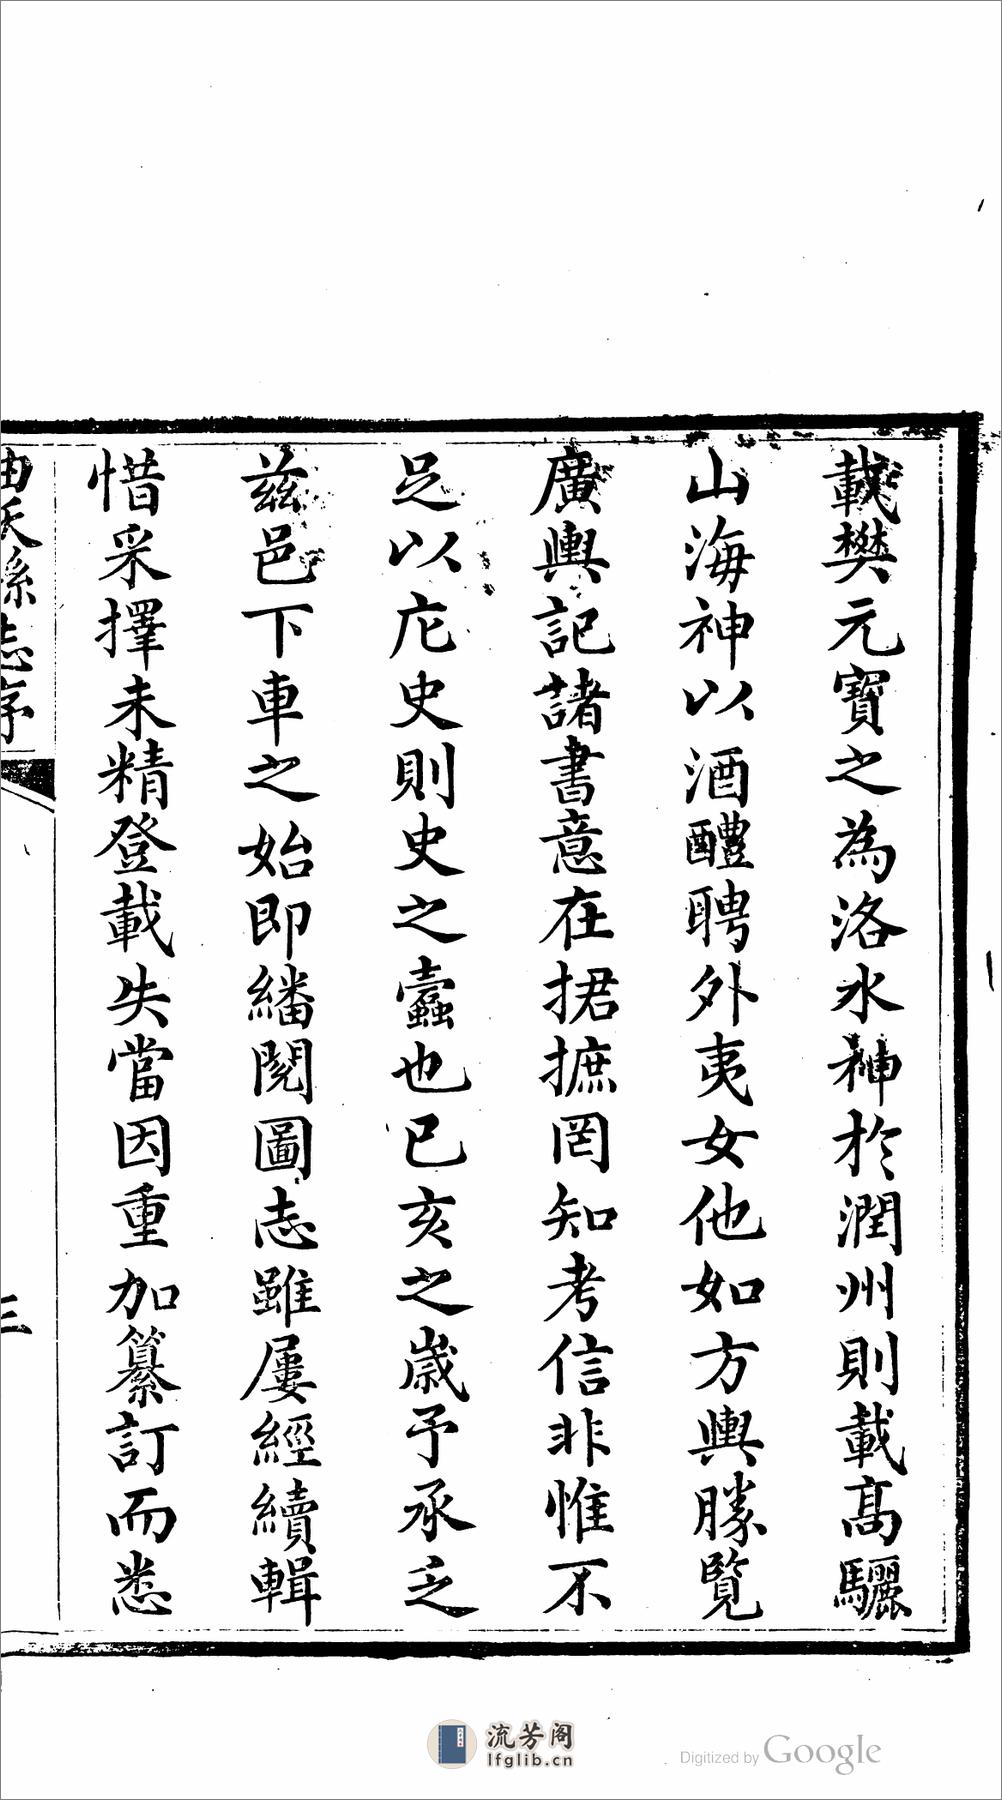 載樊元寶之為洛水神於潤州則載高驪
山海神以酒醴聘外夷女他如方輿勝覽
廣輿記諸書意在捃摭罔知考信非惟不
足以庀史則史之蠹也已亥之歲予承乏
茲邑下車之始即繙閱圖志雖屢經續輯
惜采擇未精登載失當因重加纂訂而悉
曲沃縣志序
三
流芳阁
lfglib.cn
Digitized by Google